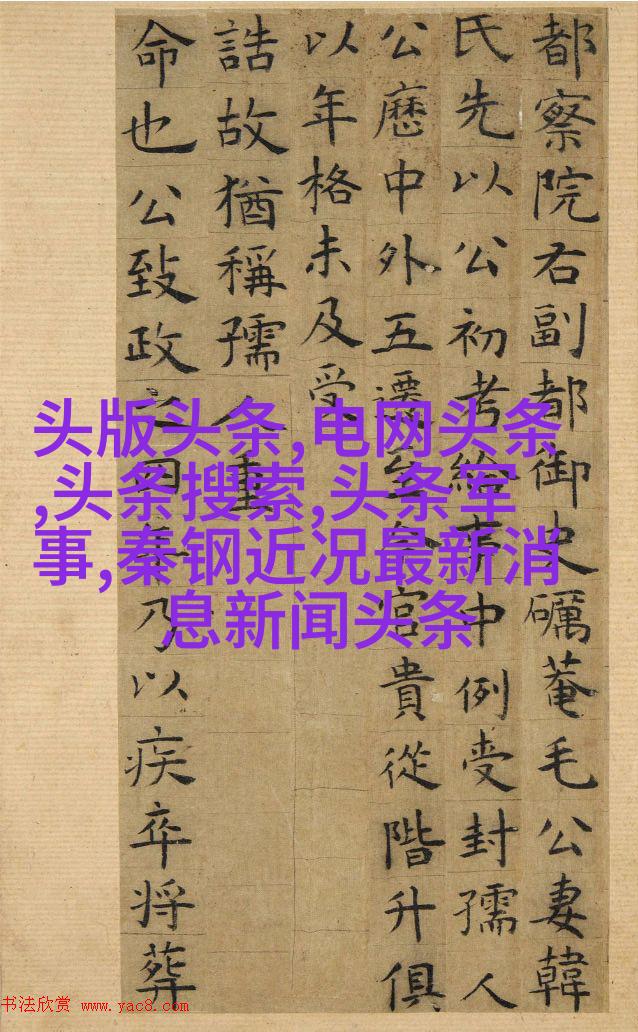 都察院右副都御史礪菴毛公妻韓
氏先以公初考給事中例受封孺人
公歷中外五遷至今官貴從階升俱
以年格未及受
誥故猶稱孺人重
命也公致政之年乃以疾卒将葬
头版头条,电网头条
,头条搜索,头条军
事,秦钢近况最新消
息新闻头条
书法欣赏 www.yac8.com